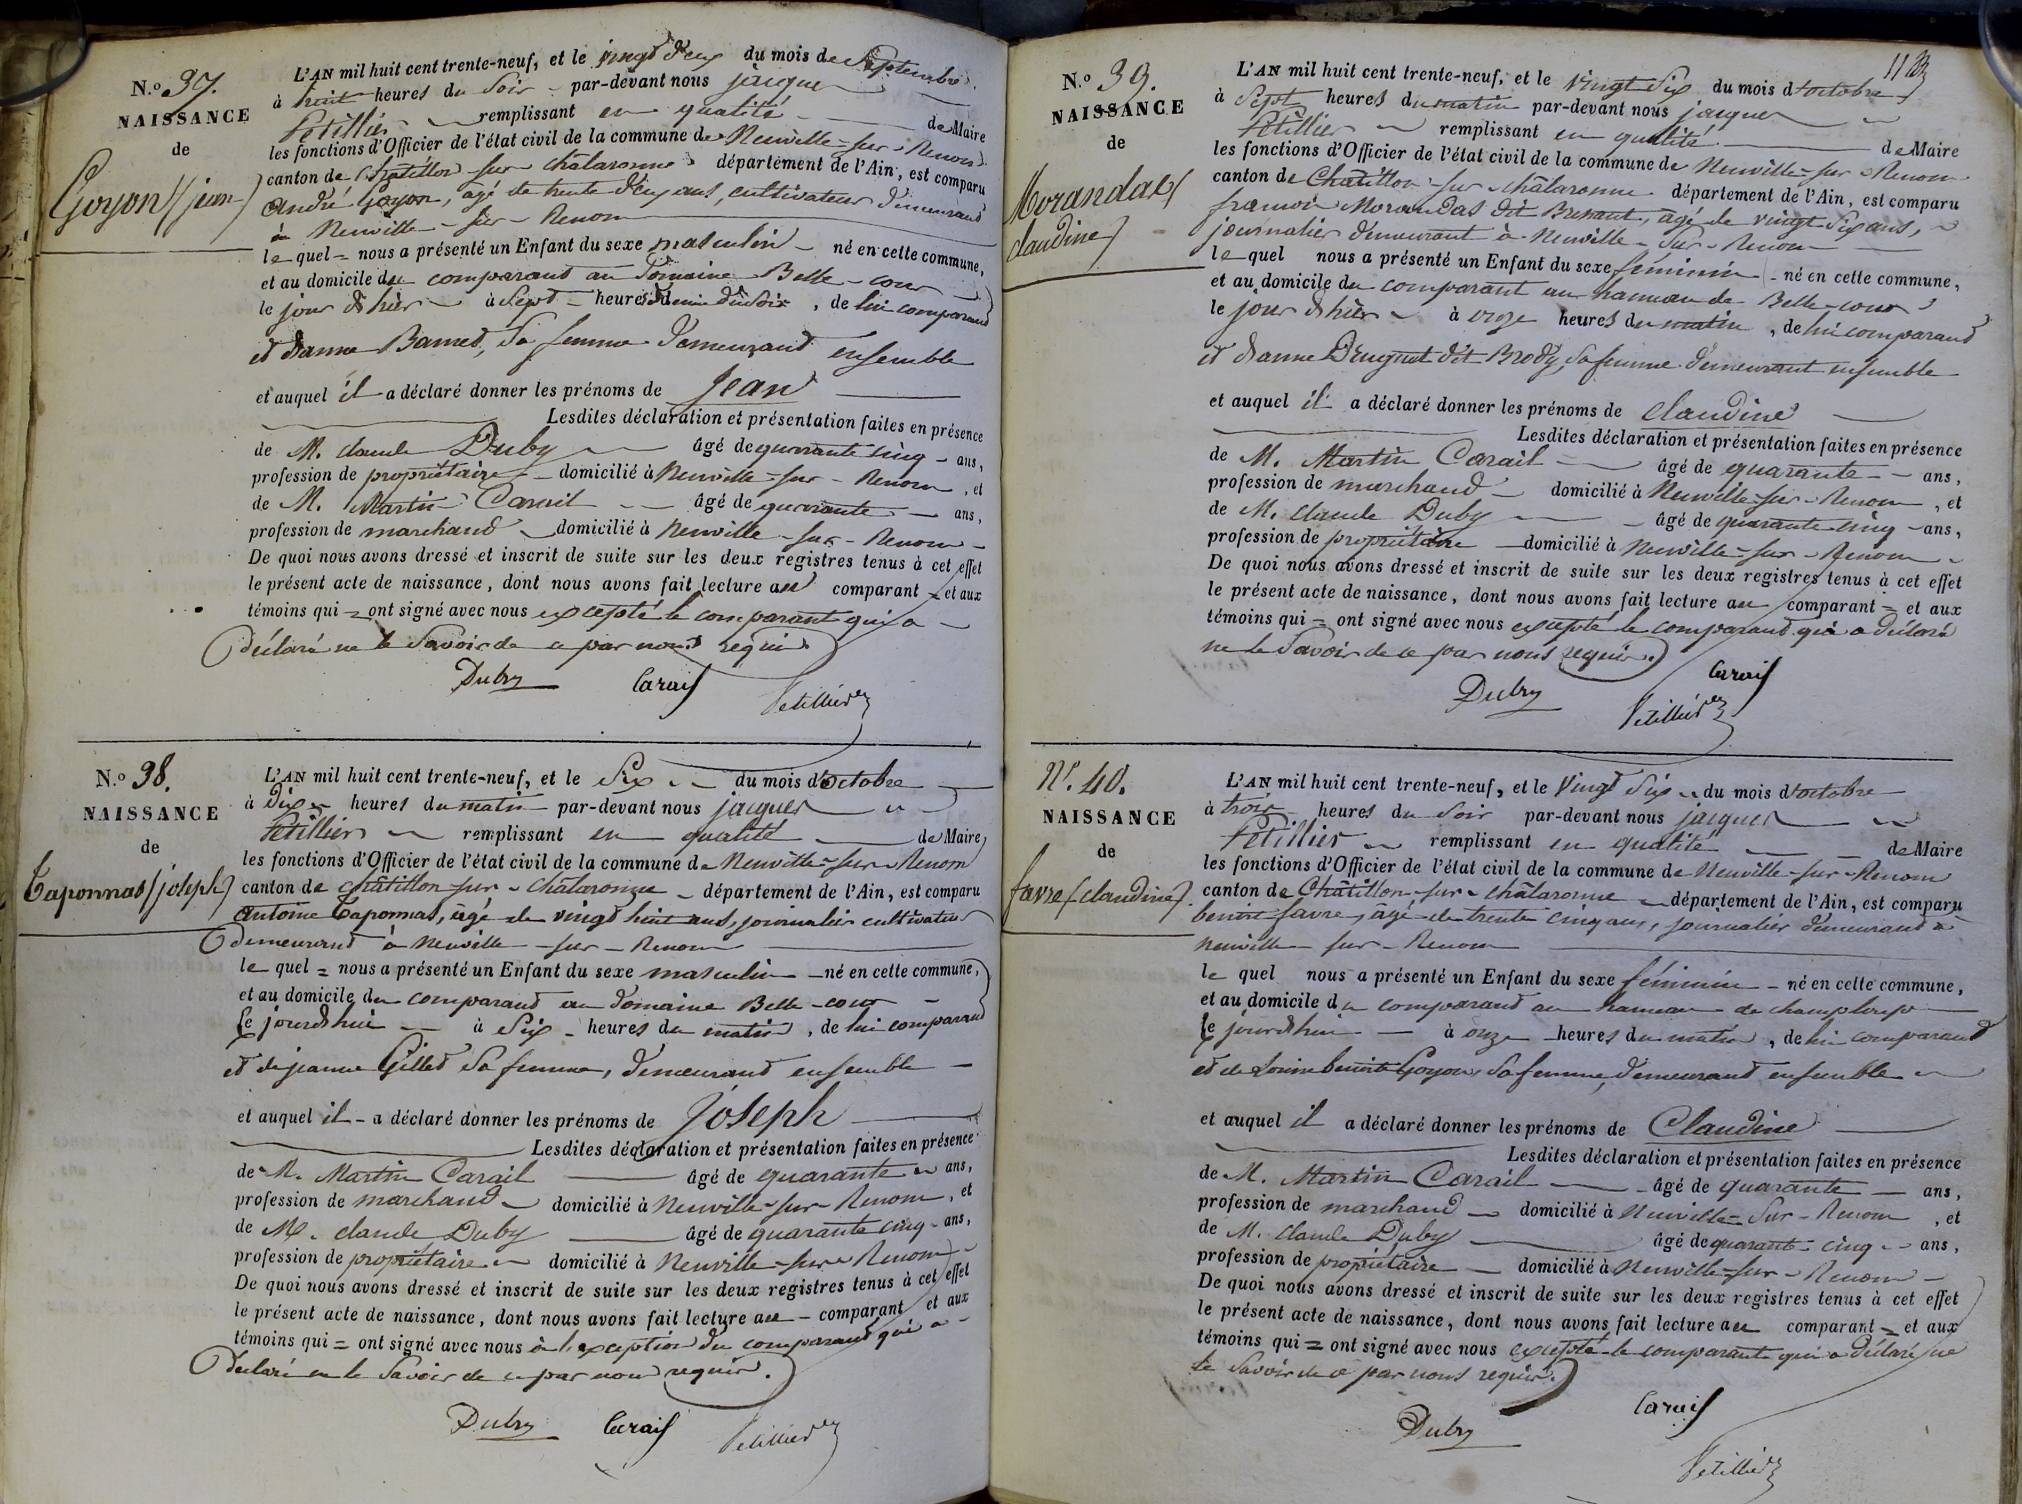 N.o 37.
NAISSANCE
de
Goyon (jean)
L'AN mil huit cent trente-neuf, et le vingt deux du mois de Septembre
à huit heures du Soir par-devant nous jacques
Petillier remplissant en qualité de Maire
les fonctions d'Officier de l'état civil de la commune de Neuville-sur-Renom
canton de Chatillon-sur-Châlaronne département de l'Ain, est comparu
André Goyon, agé de trente deux ans, cultivateur demeurand
à Neuville-sur-Renom
le quel = nous a présenté un Enfant du sexe masculin né en cette commune,
et au domicile du comparand au Domaine Belle-cour
le jour d'hier à Sept heures et demie du Soir, de lui comparand
et d'anne Barnet, Sa femme demeurand ensemble
et auquel il a déclaré donner les prénoms de Jean
Lesdites déclaration et présentation faites en présence
de M. claude Duby âgé de quarante cinq ans,
profession de propriétaire domicilié à Neuville-sur-Renom, et
de M. Martin Carail âgé de quarante ans,
profession de marchand domicilié à Neuville-sur-Renom
De quoi nous avons dressé et inscrit de suite sur les deux registres tenus à cet effet
le présent acte de naissance, dont nous avons fait lecture au comparant = et aux
témoins qui = ont signé avec nous excepté le comparant qui a
déclaré ne le Savoir de ce par nous requis.
Duby Carail Petillier
N.o 38.
NAISSANCE
de
Taponnas (joseph)
L'AN mil huit cent trente-neuf, et le Six du mois d'octobre
à dix heures du matin par-devant nous jacques
Petillier remplissant en qualité de Maire
les fonctions d'Officier de l'état civil de la commune de Neuville-sur-Renom
canton de châtillon-sur-châlaronne département de l'Ain, est comparu
antoine Taponnas, âgé de vingt huit ans, journalier cultivateur
demeurand à Neuville-sur-Renom
le quel = nous a présenté un Enfant du sexe masculin né en cette commune,
et au domicile du comparand au domaine Belle-cour
le jourd'hui à Six heures du matin, de lui comparand
et de jeanne Gillet Sa femme, demeurand ensemble
et auquel il a déclaré donner les prénoms de Joseph
Lesdites déclaration et présentation faites en présence
de M. Martin Carail âgé de quarante ans,
profession de marchand domicilié à Neuville-sur-Renom, et
de M. claude Duby âgé de quarante cinq ans,
profession de propriétaire domicilié à Neuville-sur-Renom
De quoi nous avons dressé et inscrit de suite sur les deux registres tenus à cet effet
le présent acte de naissance, dont nous avons fait lecture au comparant et aux
témoins qui = ont signé avec nous à l'exception du comparand qui a
déclaré ne le Savoir de ce par nous requis.
Duby Carail Petillier
N.o 39.
NAISSANCE
de
Morandas
(claudine)
L'AN mil huit cent trente-neuf, et le vingt Six du mois d'octobre
à Sept heures du matin par-devant nous jacques
Petillier remplissant en qualité de Maire
les fonctions d'Officier de l'état civil de la commune de Neuville-sur-Renom
canton de Chatillon-sur-châlaronne département de l'Ain, est comparu
françois Morandas dit Brenant, âgé de vingt Six ans,
journalier demeurant à Neuville-Sur-Renom
le quel nous a présenté un Enfant du sexe féminin né en cette commune,
et au domicile du comparant au hameau de Belle-cour
le jour d'hier à onze heures du matin, de lui comparand
et d'anne Drugnot dit Brody, Sa femme demeurant ensemble
et auquel il a déclaré donner les prénoms de claudine
Lesdites déclaration et présentation faites en présence
de M. Martin Carail âgé de quarante ans,
profession de marchand domicilié à Neuville-sur-Renom, et
de M. claude Duby âgé de quarante cinq ans,
profession de propriétaire domicilié à Neuville-sur-Renom
De quoi nous avons dressé et inscrit de suite sur les deux registres tenus à cet effet
le présent acte de naissance, dont nous avons fait lecture au comparant = et aux
témoins qui = ont signé avec nous excepté le comparand qui a déclaré
ne le Savoir de ce par nous requis.
Duby Carail
Petillier
N.o 40.
NAISSANCE
de
favre (claudine)
L'AN mil huit cent trente-neuf, et le Vingt Six du mois d'octobre
à trois heures du Soir par-devant nous jacques
Petillier remplissant en qualité de Maire
les fonctions d'Officier de l'état civil de la commune de Neuville-sur-Renom
canton de Châtillon-sur-châlaronne département de l'Ain, est comparu
benoit favre, âgé de trente cinq ans, journalier demeurand à
neuville sur-Renom
le quel nous a présenté un Enfant du sexe féminin né en cette commune,
et au domicile du comparand au hameau de
le jourd'hui à onze heures du matin, de lui comparand
et de Louise benoite Goyon, Sa femme, demeurand ensemble
et auquel il a déclaré donner les prénoms de Claudine
Lesdites déclaration et présentation faites en présence
de M. Martin Carail âgé de quarante ans,
profession de marchand domicilié à Neuville-Sur-Renom, et
de M. claude Duby âgé de quarante cinq ans,
profession de propriétaire domicilié à Neuville-sur-Renom
De quoi nous avons dressé et inscrit de suite sur les deux registres tenus à cet effet
le présent acte de naissance, dont nous avons fait lecture au comparant = et aux
témoins qui = ont signé avec nous excepté le comparant qui a déclaré ne
le Savoir de ce par nous requis.
Duby Carail
Petillier